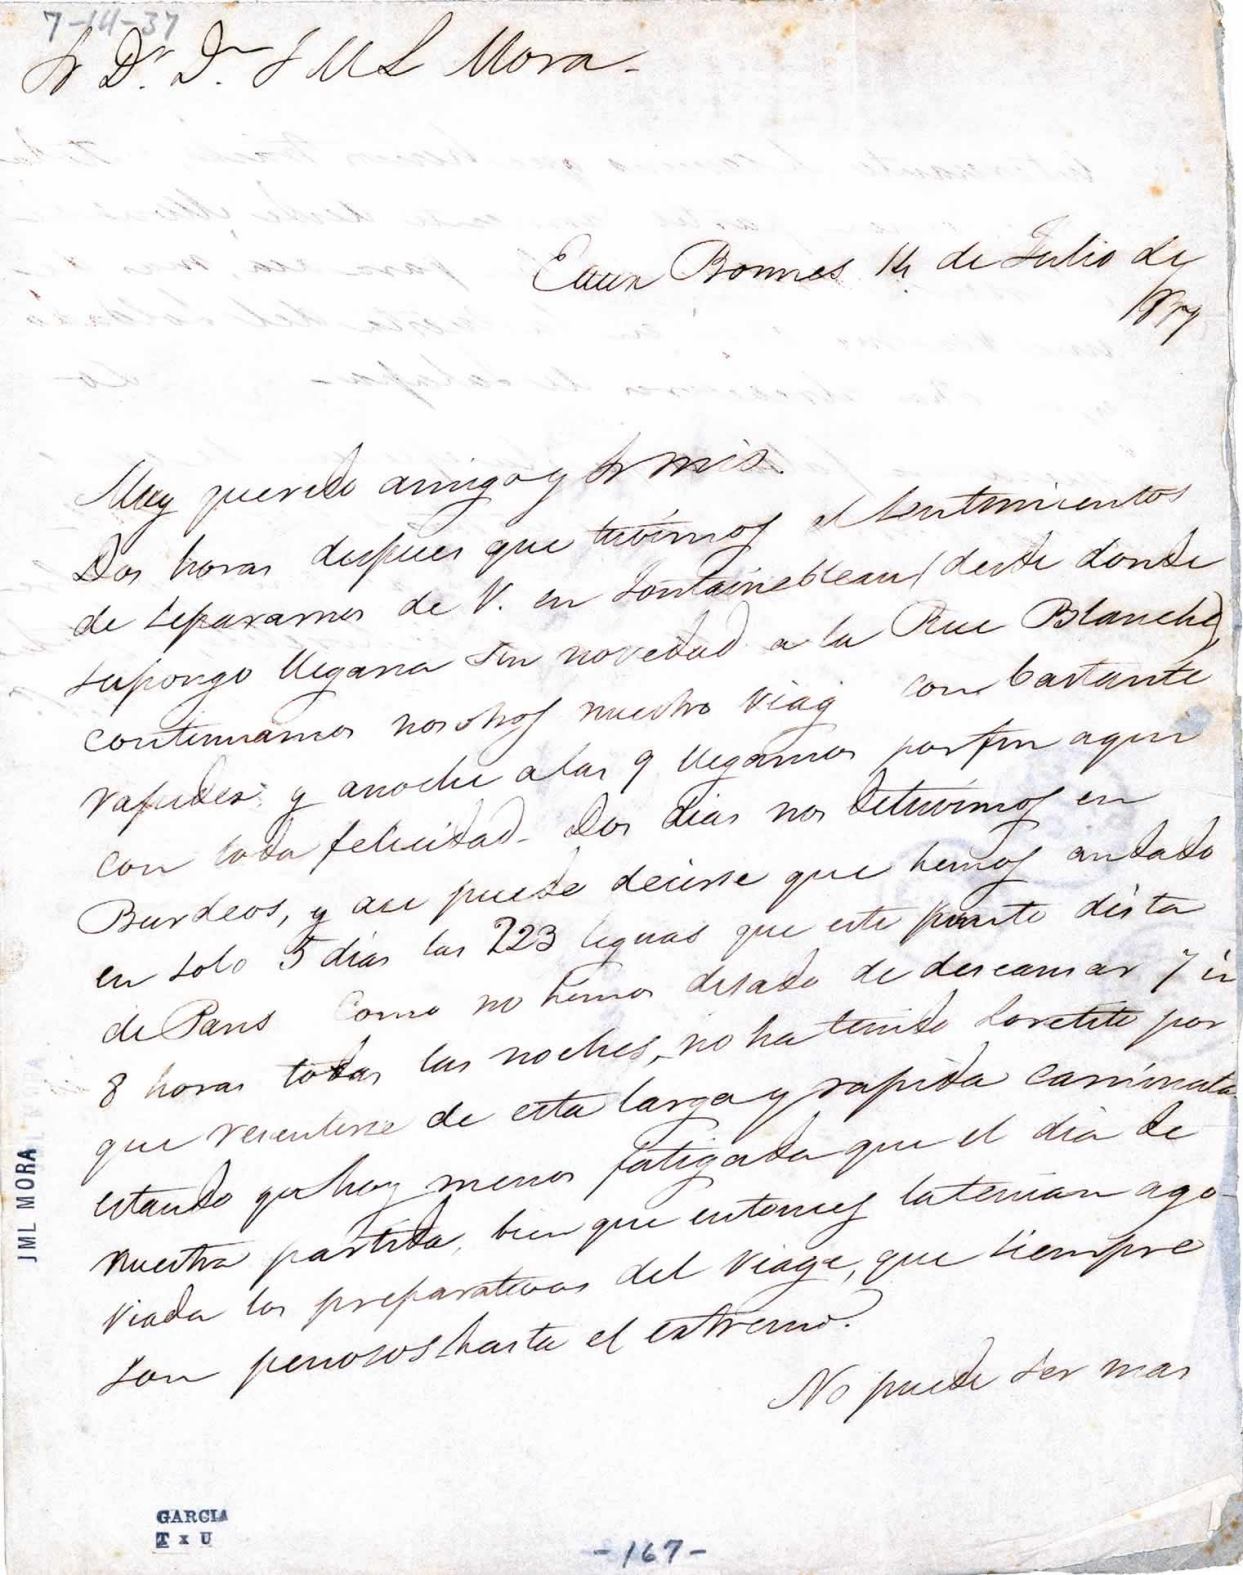 7-14-37
Sr Dr. Dn J M L Mora.
Eaux Bonnes 14 de Julio de
1837
Muy querido amigo y Sr mio.
Dos horas despues que tuvimos el sentimientos
de separarnos de V. en Fontainebleau (desde donde
supongo llegaria sin novedad a la Rue Blanche)
continuamos nosotros nuestro viag con bastante
rapidez y anoche a las 9 llegamos por fin aqui
con toda felicidad. Dos dias nos detuvimos en
Burdeos, y asi puede decirse que hemos andado
en solo 5 dias las 223 leguas que este punto dista
de Paris Como no hemos dejado de descansar 7 ú
8 horas todas las noches, no ha tenido Loretito por
que resentirse de esta larga y rapida caminata
estando hoy menos fatigada que el dia de
nuestra partida, bien que entonces la tenian ago-
viada los preparativos del viage, que siempre
son penosos hasta el extremo.
No puede ser mas
JML MORA
GARCIA
T x U
-167-